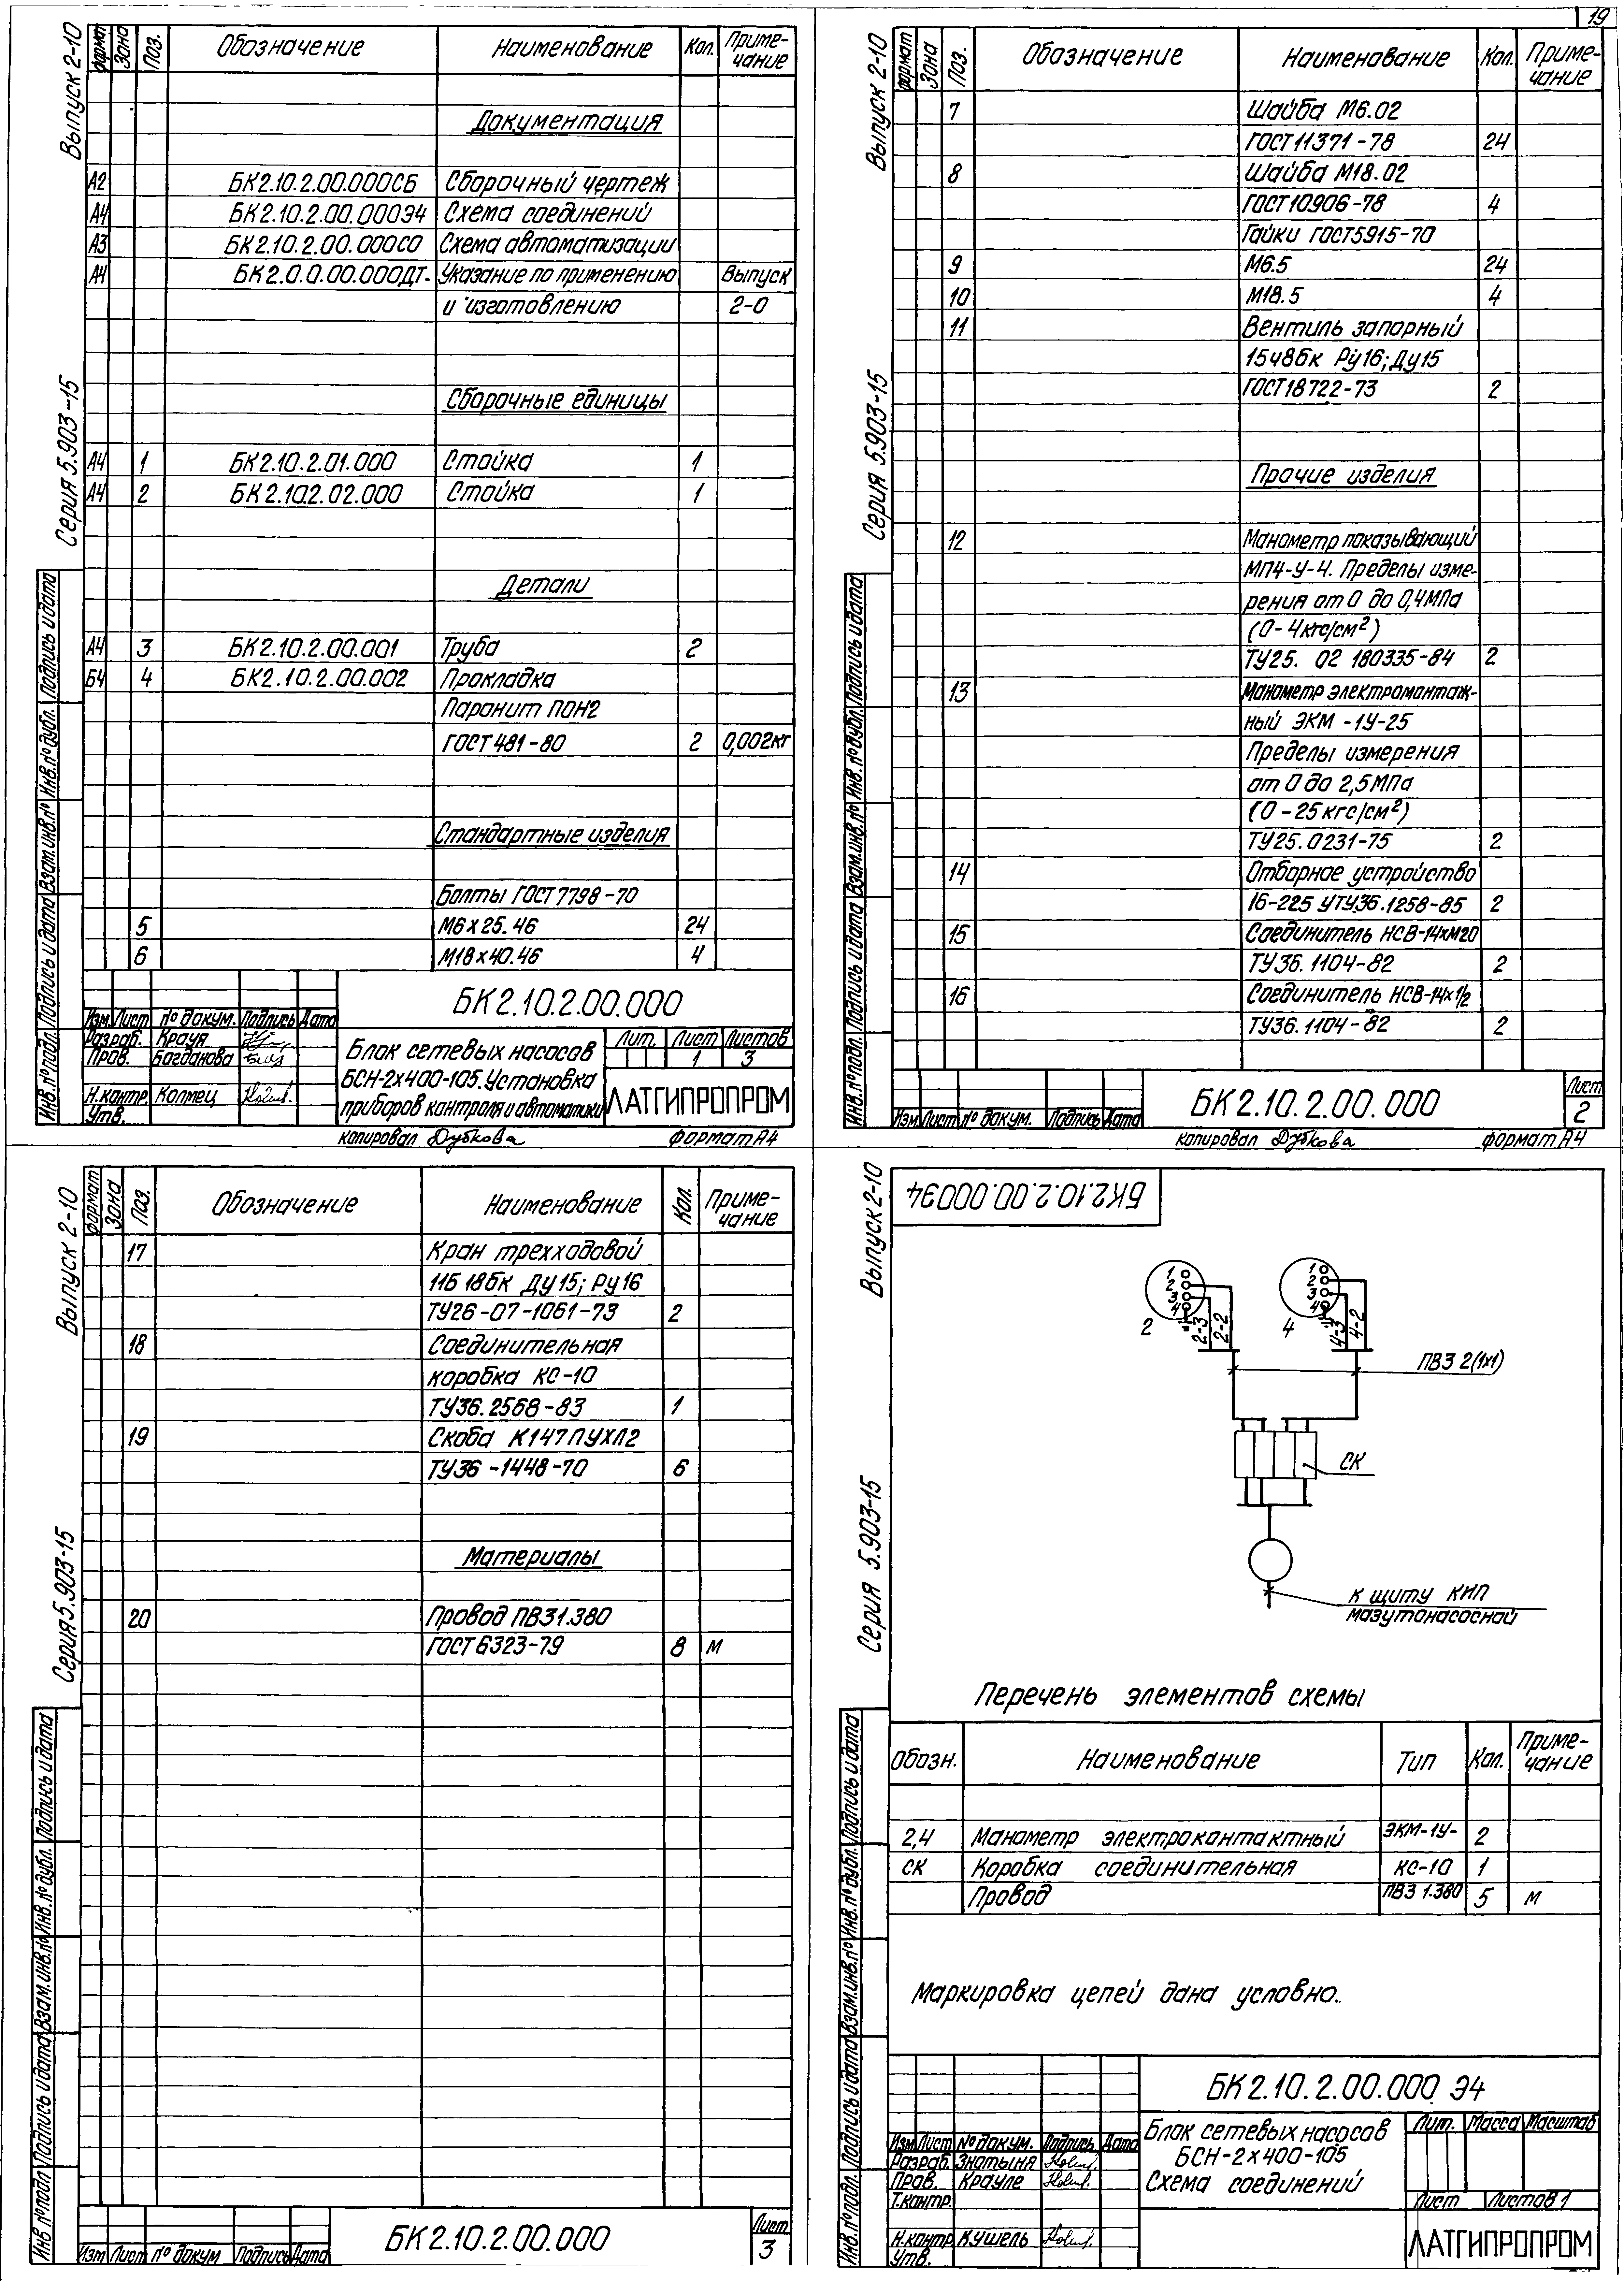 19
Выпуск 2-10
Серия 5.903-15
Формат Зона Поз. Обозначение Наименование Кол. Приме-
чание
Документация
А2 БК2.10.2.00.000СБ Сборочный чертеж
А4 БК2.10.2.00.000Э4 Схема соединений
А3 БК2.10.2.00.000СО Схема автоматизации
А4 БК2.0.0.00.000ДТ. Указание по применению Выпуск
и изготовлению 2-0
Сборочные единицы
А4 1 БК2.10.2.01.000 Стойка 1
А4 2 БК2.10.2.02.000 Стойка 1
Детали
А4 3 БК2.10.2.00.001 Труба 2
Б4 4 БК2.10.2.00.002 Прокладка
Паронит ПОН2
ГОСТ 481-80 2 0,002кг
Стандартные изделия
Болты ГОСТ7798-70
5 М6х25.46 24
6 М18х40.46 4
Инв.№подл. Подпись и дата Взам.инв.№ Инв.№дубл. Подпись и дата
БК2.10.2.00.000
Изм. Лист №докум. Подпись Дата
Разраб. Крауя
Пров. Богданова
Н.контр. Колмец
Утв.
Блок сетевых насосов
БСН-2х400-105.Установка
приборов контроля и автоматики
Лит. Лист Листов
1 3
ЛАТГИПРОПРОМ
копировал Дубкова формат А4
Выпуск 2-10
Серия 5.903-15
Формат Зона Поз. Обозначение Наименование Кол. Приме-
чание
7 Шайба М6.02
ГОСТ11371-78 24
8 Шайба М18.02
ГОСТ10906-78 4
Гайки ГОСТ5915-70
9 М6.5 24
10 М18.5 4
11 Вентиль запорный
15ч8бк Ру16;Ду15
ГОСТ18722-73 2
Прочие изделия
12 Манометр показывающий
МП4-У-4. Пределы изме-
рения от 0 до 0,4МПа
(0-4кгс/см²)
ТУ25. 02 180335-84 2
13 Манометр электромонтаж-
ный ЭКМ -1У-25
Пределы измерения
от 0 до 2,5МПа
(0-25кгс/см²)
ТУ25.0231-75 2
14 Отборное устройство
16-225 УТУ36.1258-85 2
15 Соединитель НСВ-14хМ20
ТУ36.1104-82 2
16 Соединитель НСВ-14х1/2
ТУ36.1104-82 2
Инв.№подл. Подпись и дата Взам.инв.№ Инв.№дубл. Подпись и дата
Изм. Лист №докум. Подпись Дата
БК2.10.2.00.000
Лист
2
копировал Дубкова формат А4
Выпуск 2-10
Серия 5.903-15
Формат Зона Поз. Обозначение Наименование Кол. Приме-
чание
17 Кран трехходовой
11Б18бк Ду15; Ру16
ТУ26-07-1061-73 2
18 Соединительная
коробка КС-10
ТУ36.2568-83 1
19 Скоба К147ПУХЛ2
ТУ36-1448-70 6
Материалы
20 Провод ПВ31.380
ГОСТ6323-79 8 м
Инв.№подл Подпись и дата Взам.инв.№ Инв.№дубл. Подпись и дата
Изм Лист №докум Подпись Дата
БК2.10.2.00.000
Лист
3
Выпуск 2-10
Серия 5.903-15
БК2.10.2.00.000Э4
1 2 3 4
1 2 3 4
2 2-3 2-2
4 4-3 4-2
ПВ3 2(1х1)
СК
К щиту КИП
мазутонасосной
Перечень элементов схемы
Обозн. Наименование Тип Кол. Приме-
чание
2,4 Манометр электроконтактный ЭКМ-1У- 2
СК Коробка соединительная КС-10 1
Провод ПВ3 1.380 5 м
Маркировка цепей дана условно.
Инв.№подл. Подпись и дата Взам.инв.№ Инв.№дубл. Подпись и дата
БК2.10.2.00.000 Э4
Изм Лист №докум. Подпись Дата
Разраб. Знатыня
Пров. Крауле
Т.контр.
Н.контр К.ушель
Утв.
Блок сетевых насосов
БСН-2х400-105
Схема соединений
Лит. Масса Масштаб
Лист Листов 1
ЛАТГИПРОПРОМ